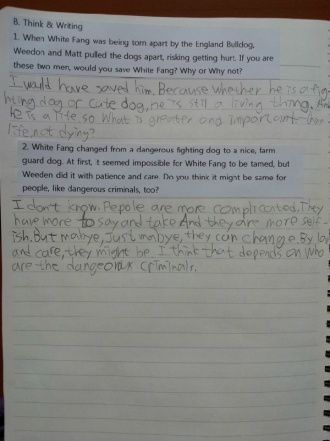 B. Think & Writing
1. When White Fang was being torn apart by the England Bulldog,
Weedon and Matt pulled the dogs apart, risking getting hurt. If you are
these two men, would you save White Fang? Why or Why not?
I would have saved him. Because whether he is a fig-
hting dog or cute dog, he is still a living thing.
he is a life, so. What is greater and important than
life, not dying?
2. White Fang changed from a dangerous fighting dog to a nice, farm
guard dog. At first, it seemed impossible for White Fang to be tamed, but
Weeden did it with patience and care. Do you think it might be same for
people, like dangerous criminals, too?
I don't know. Pepole are more complicated. They
have more to say and take And they are more self-
ish. But mabye, Just mabye, they can change. By lov
and care, they might be I think that depends on who
are the criminals.